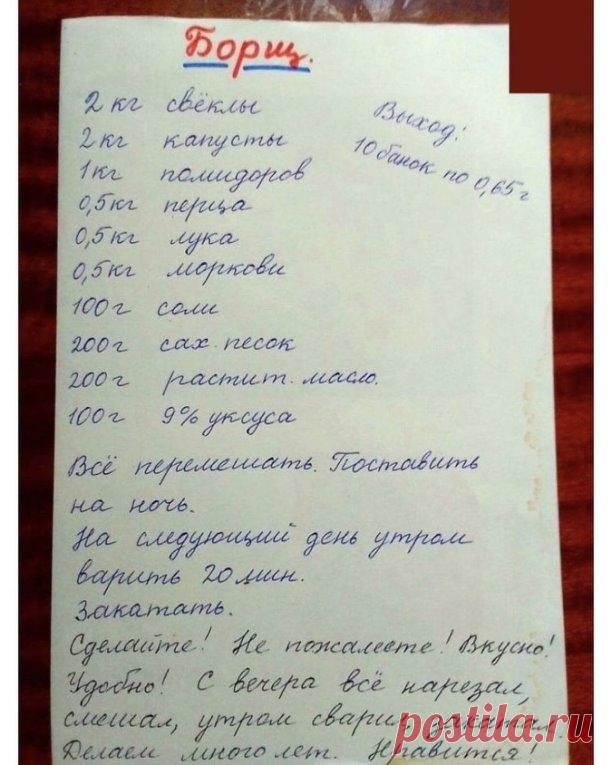 Борщ.
2 кг свёклы
2 кг капусты
1 кг помидоров
0,5 кг перца
0,5 кг лука
0,5 кг моркови
100 г соли
200 г сах. песок
200 г растит. масло.
100 г 9% уксуса
Выход:
10 банок по 0,65 г
Всё перемешать. Поставить
на ночь.
На следующий день утром
варить 20 мин.
Закатать.
Сделайте! Не пожалеете! Вкусно!
Удобно! С вечера всё нарезал,
смешал, утром сварил, закатал.
Делаем много лет. Нравится!
postila.ru